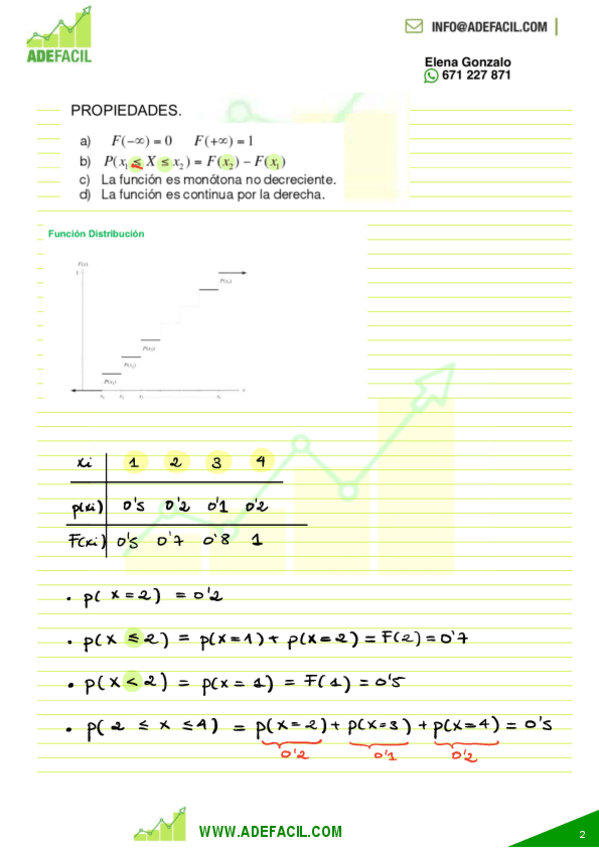 INFO@ADEFACIL.COM
ADEFACIL
Elena Gonzalo
671 227 871
PROPIEDADES.
a) F(−∞) = 0 F(+∞) = 1
b) P(x₁ ≤ X ≤ x₂) = F(x₂) − F(x₁)
c) La función es monótona no decreciente.
d) La función es continua por la derecha.
Función Distribución
F(x)
1
P(x₁)
P(x₂)
P(x₃)
x
xi 1 2 3 4
p(xi) 0'5 0'2 0'1 0'2
F(xi) 0'5 0'7 0'8 1
• p(x=2) = 0'2
• p(x ≤ 2) = p(x=1) + p(x=2) = F(2) = 0'7
• p(x < 2) = p(x=1) = F(1) = 0'5
• p(2 ≤ x ≤ 4) = p(x=2) + p(x=3) + p(x=4) = 0'5
0'2 0'1 0'2
WWW.ADEFACIL.COM
2